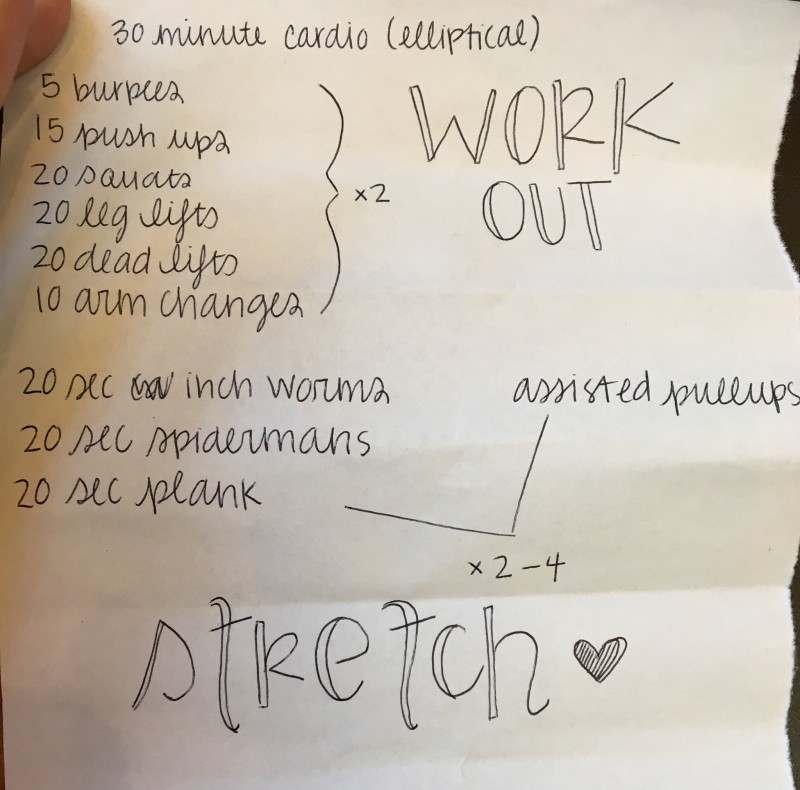 30 minute cardio (elliptical)
WORK
OUT
5 burpees
15 push ups
20 squats
20 leg lifts
20 dead lifts
10 arm changes
x2
20 sec inch worms
20 sec spidermans
20 sec plank
assisted pullups
x 2-4
stretch